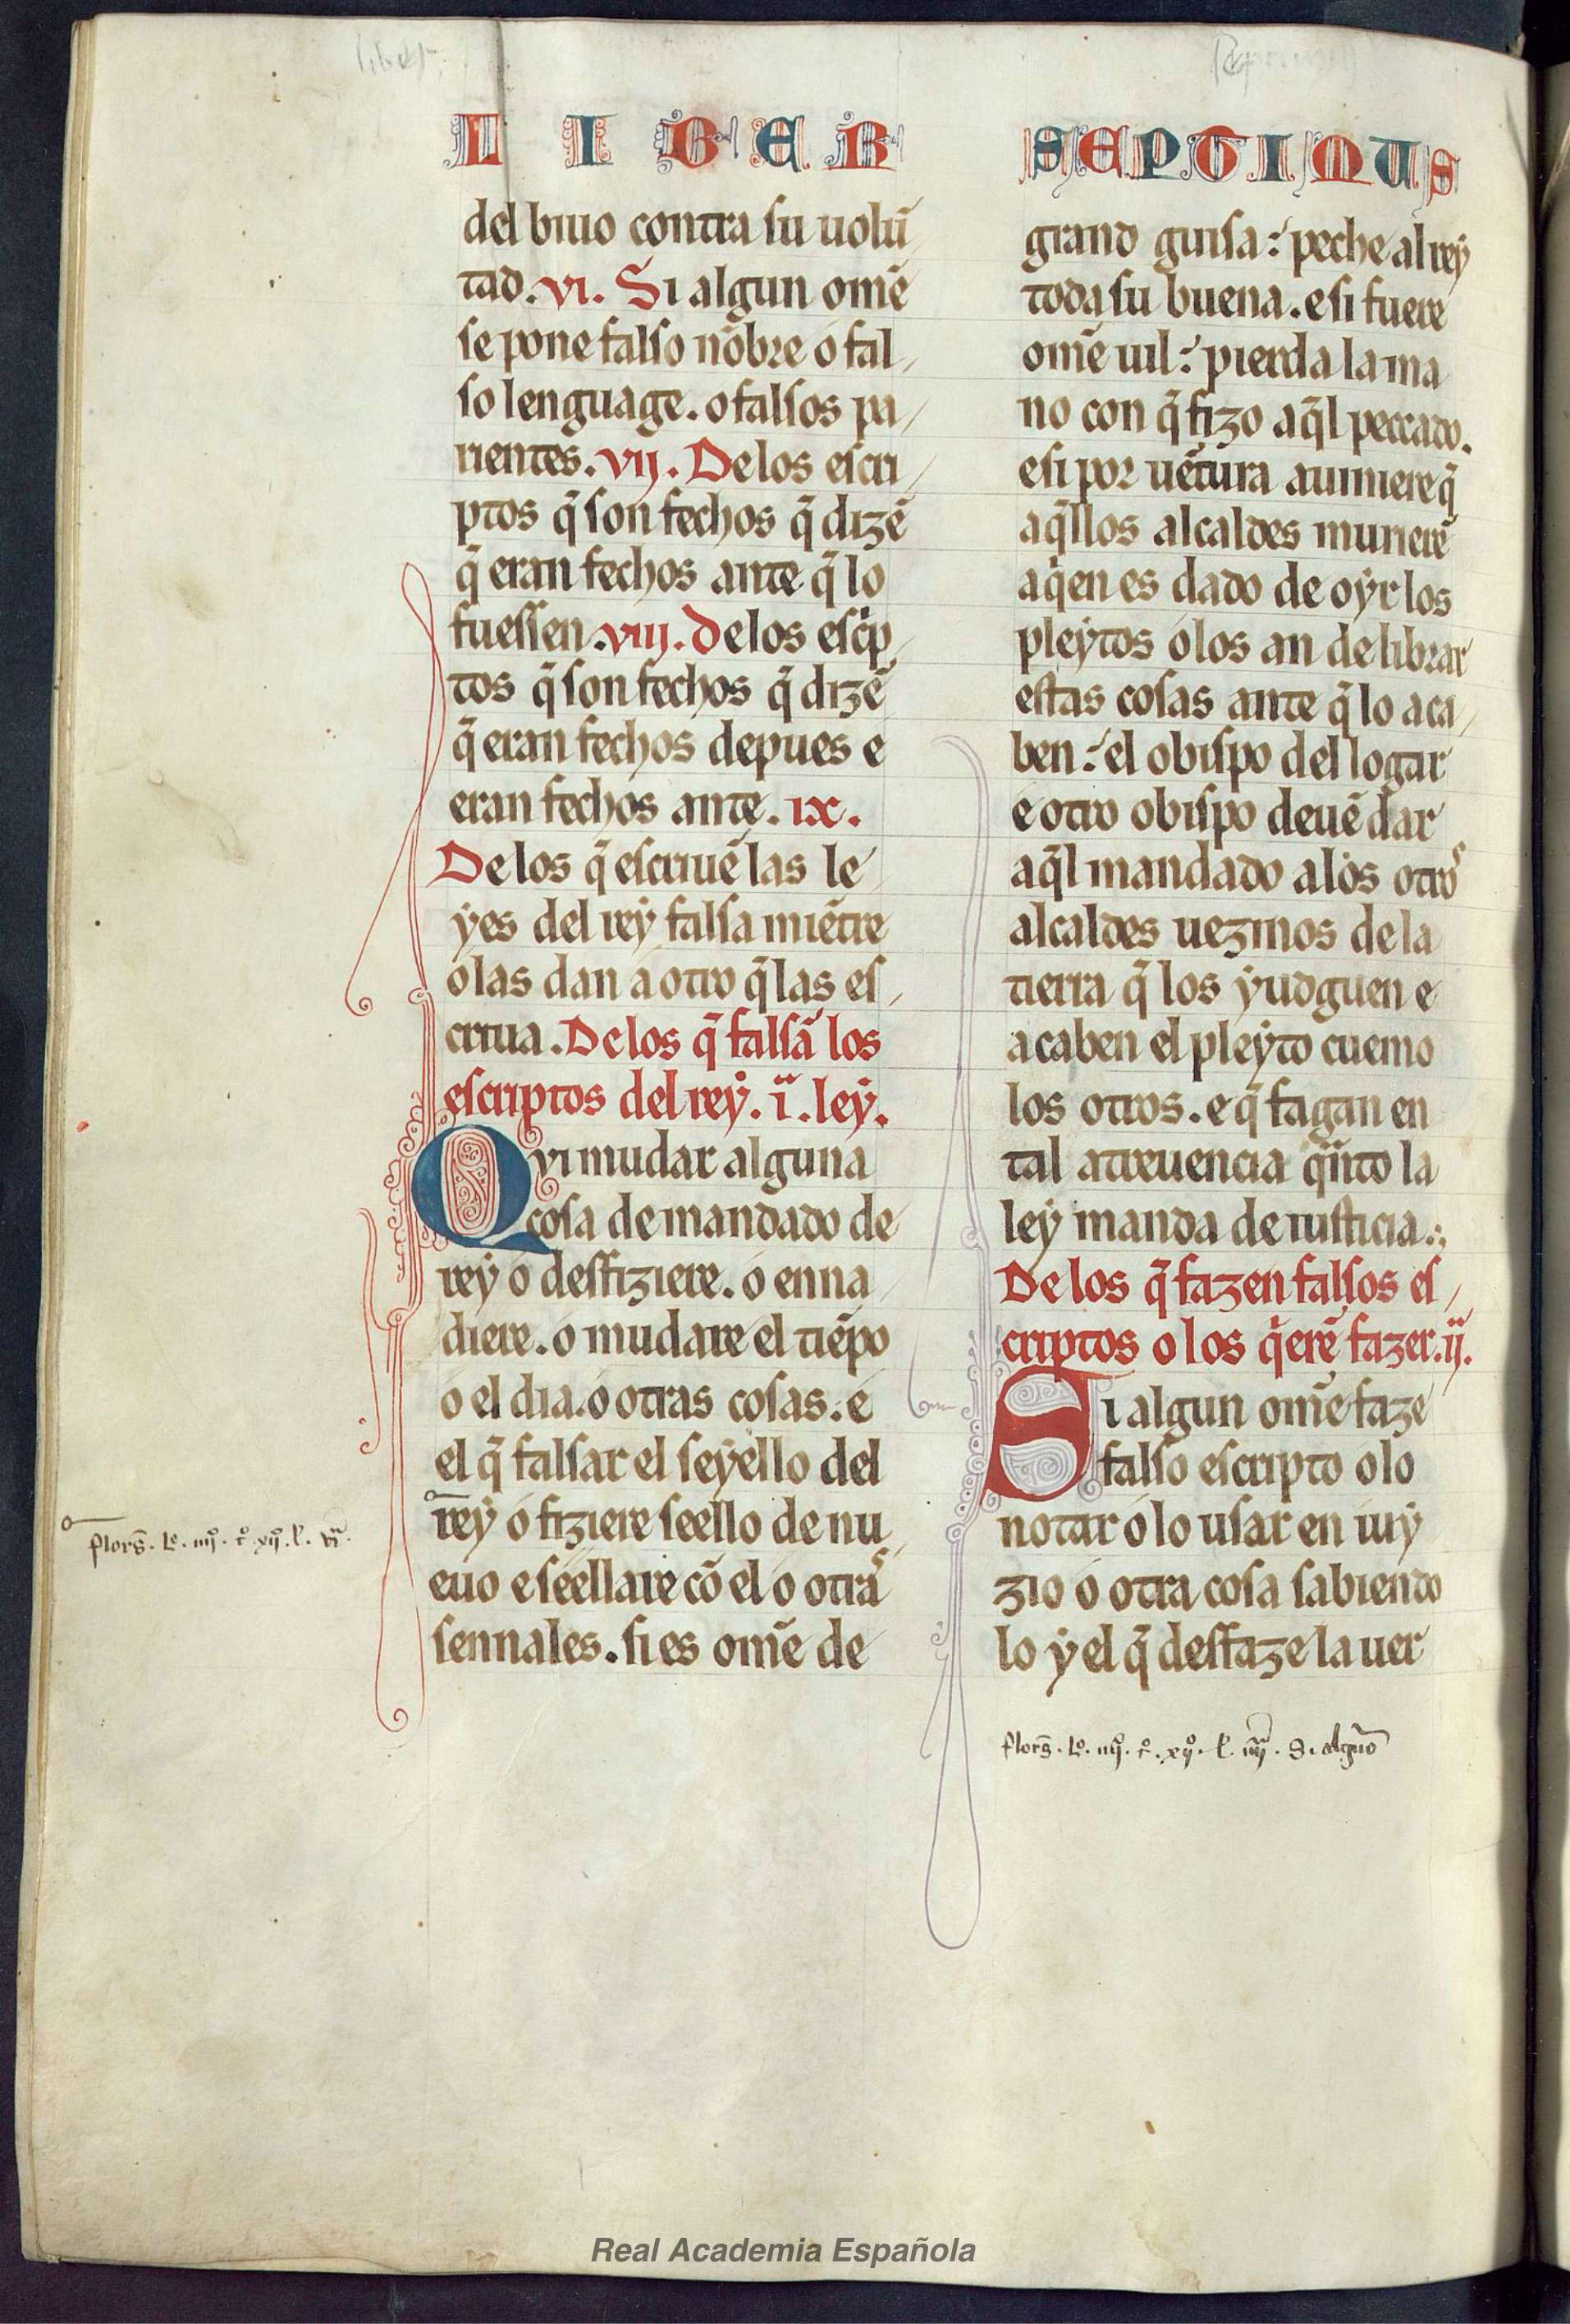 liber
LIBER SEPTIMUS
del biuo contra su uolũ
tad. vi. Si algun omẽ
se pone falso nõbre o fal
so lenguage. o falsos pa
rientes. vij. Delos escri
ptos q̃ son fechos q̃ dizẽ
q̃ eran fechos ante q̃ lo
fuessen. viij. delos escͥp
tos q̃ son fechos q̃ dizẽ
q̃ eran fechos depues e
eran fechos ante. ix.
Delos q̃ escriuẽ las le
yes del rey falsa miẽtre
o las dan a otro q̃ las es
criua. Delos q̃ falsã los
escriptos del rey. i.ͣ ley.
Qvi mudar alguna
cosa de mandado de
rey o desfiziere. o enna
diere. o mudare el tiẽpo
o el dia. o otras cosas. e
el q̃ falsar el seyello del
rey o fiziere seello de nu
euo e seellare cõ el o otraˢ
sennales. si es omẽ de
grand guisa: peche al rey
toda su buena. e si fuere
omẽ uil: pierda la ma
no con q̃ fizo aq̃l peccado.
e si por uẽtura auiniere q̃
aq̃llos alcaldes murierẽ
a qͥen es dado de oyr los
pleytos o los an de librar
estas cosas ante q̃ lo aca
ben: el obispo del logar
e otro obispo deuẽ dar
aq̃l mandado alos otroˢ
alcaldes uezinos de la
tierra q̃ los yudguen e
acaben el pleyto cuemo
los otros. e q̃ fagan en
tal atreuencia qͣnto la
ley manda de iusticia.
De los q̃ fazen falsos es
criptos o los qͥerẽ fazer. ij.ͣ
Si algun omẽ faze
falso escripto o lo
notar o lo usar en iuy
zio o otra cosa sabiendo
lo y el q̃ desfaze la uer
flor̃s. lº. iiijº. tº. xijº. l. vͣ.
flor̃s. lº. iiijº. tº. xijº. l. iiijͣ. Si alguno
Real Academia Española